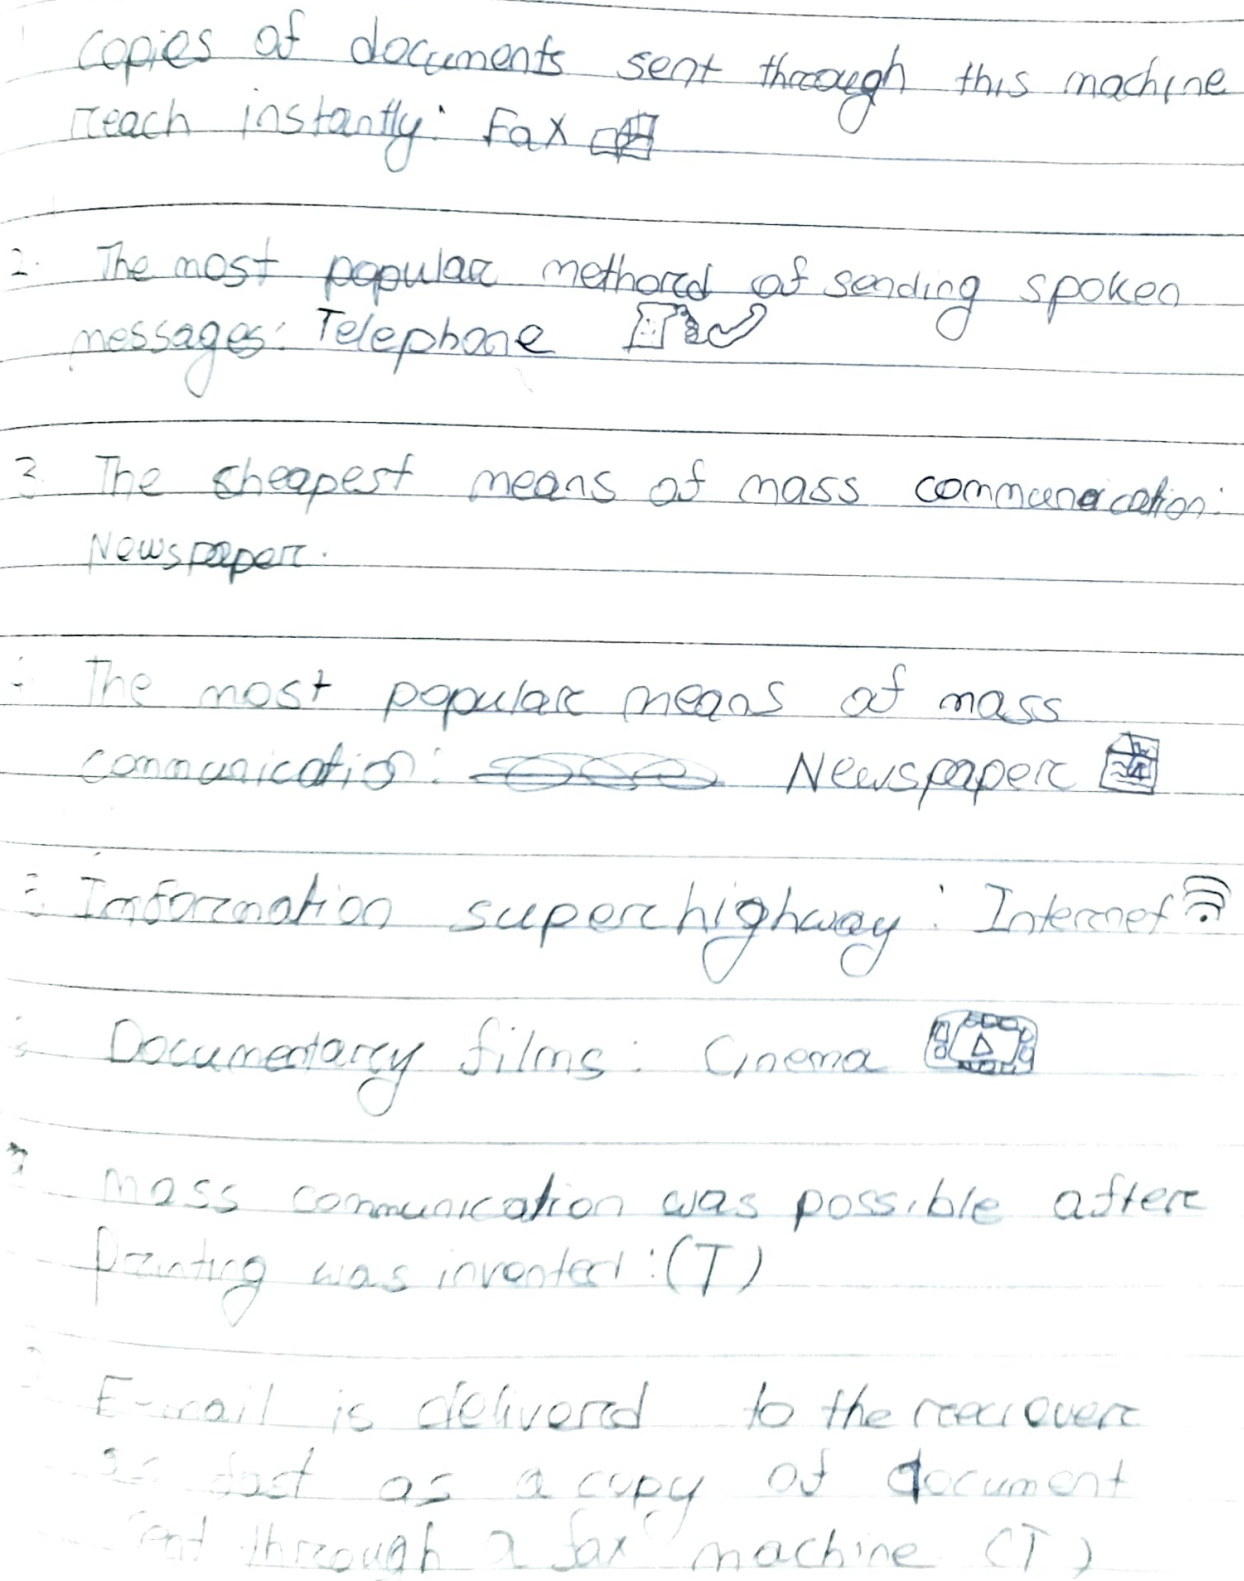 copies of documents sent through this machine
reach instantly: Fax
2. The most popular methord of sending spoken
messages: Telephone
3. The cheapest means of mass communication:
Newspaper.
The most popular means of mass
communication: Newspaper
Information superhighway: Internet
Documentary films: Cinema
7 mass communication was possible after
printing was invented: (T)
E-mail is delivered to the reciever
as fast as a copy of document
sent through a fax machine (T)